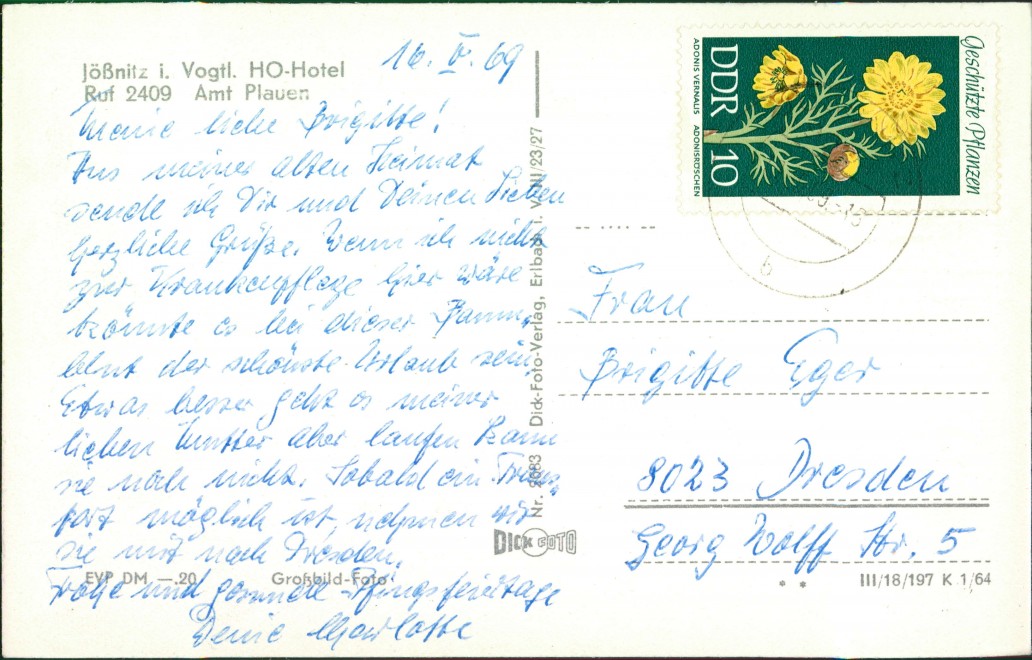 Jößnitz i. Vogtl. HO-Hotel
Ruf 2409 Amt Plauen
16. V. 69
Meine liebe Brigitte!
Aus meiner alten Heimat
sende ich Dir und Deinen Lieben
herzliche Grüße. Wenn ich nicht
zur Krankenpflege hier wäre
könnte es bei dieser Baum-
blut der schönste Urlaub sein.
Etwas besser geht es meiner
lieben Mutter aber laufen kann
sie noch nicht. Sobald ein Trans-
port möglich ist, nehmen wir
sie mit nach Dresden.
Frohe und gesunde Pfingsfeiertage
Deine Charlotte
EVP DM —.20 Großbild-Foto
Dick-Foto-Verlag, Erlbach i. V. III/23/27
DICK FOTO
Geschützte Pflanzen
DDR 10
ADONIS VERNALIS ADONISRÖSCHEN
b
Frau
Brigitte Eger
8023 Dresden
Georg Wolff Str. 5
* * III/18/197 K 1/64